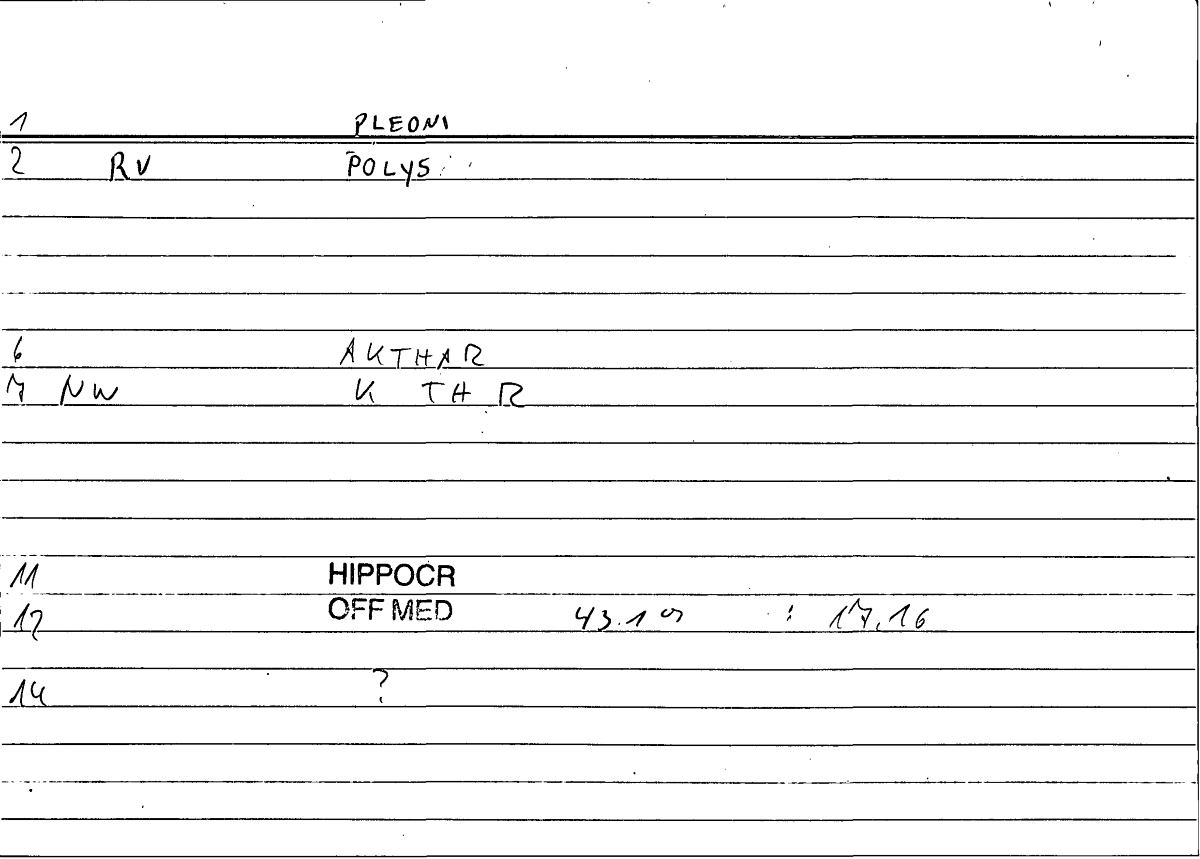 1 PLEONI
2 RV POLYS
6 AKTHAR
7 NW K TH R
11 HIPPOCR
12 OFF MED 43.19 : 17.16
14 ?